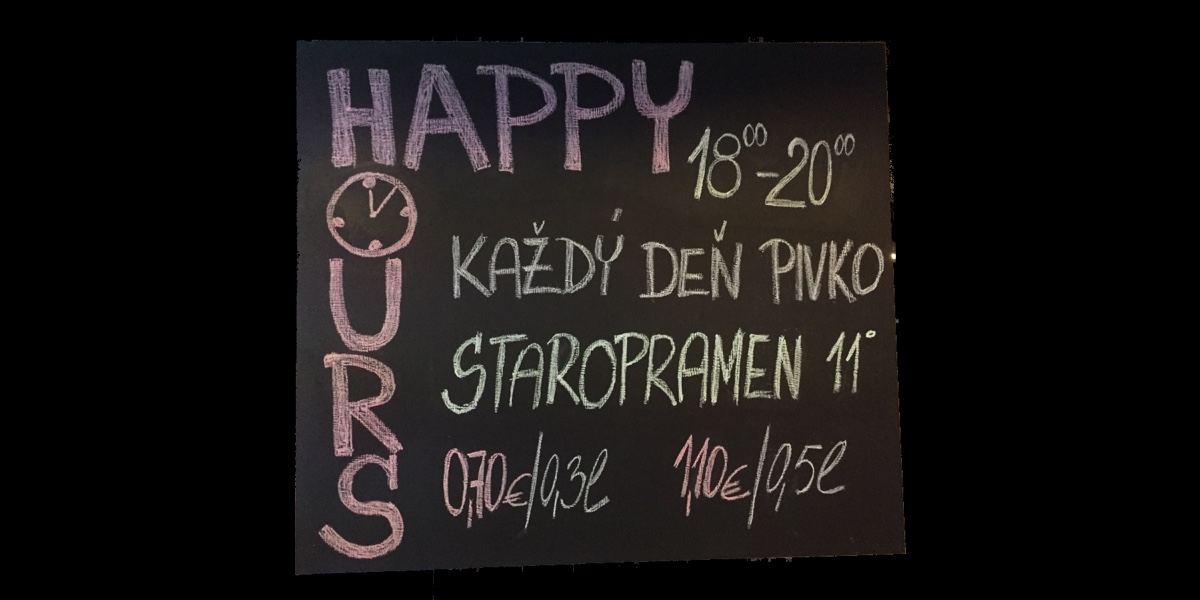 HAPPY
HOURS
18⁰⁰-20⁰⁰
KAŽDÝ DEŇ PIVKO
STAROPRAMEN 11°
0,70€/0,3l 1,10€/0,5l